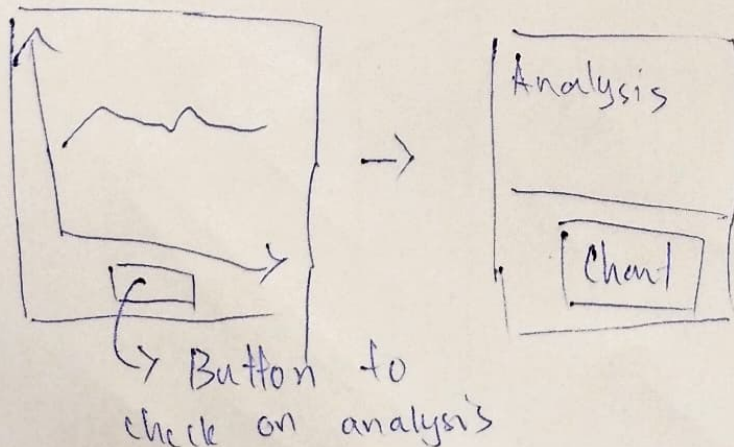 Analysis
Chart
Button to
check on analysis